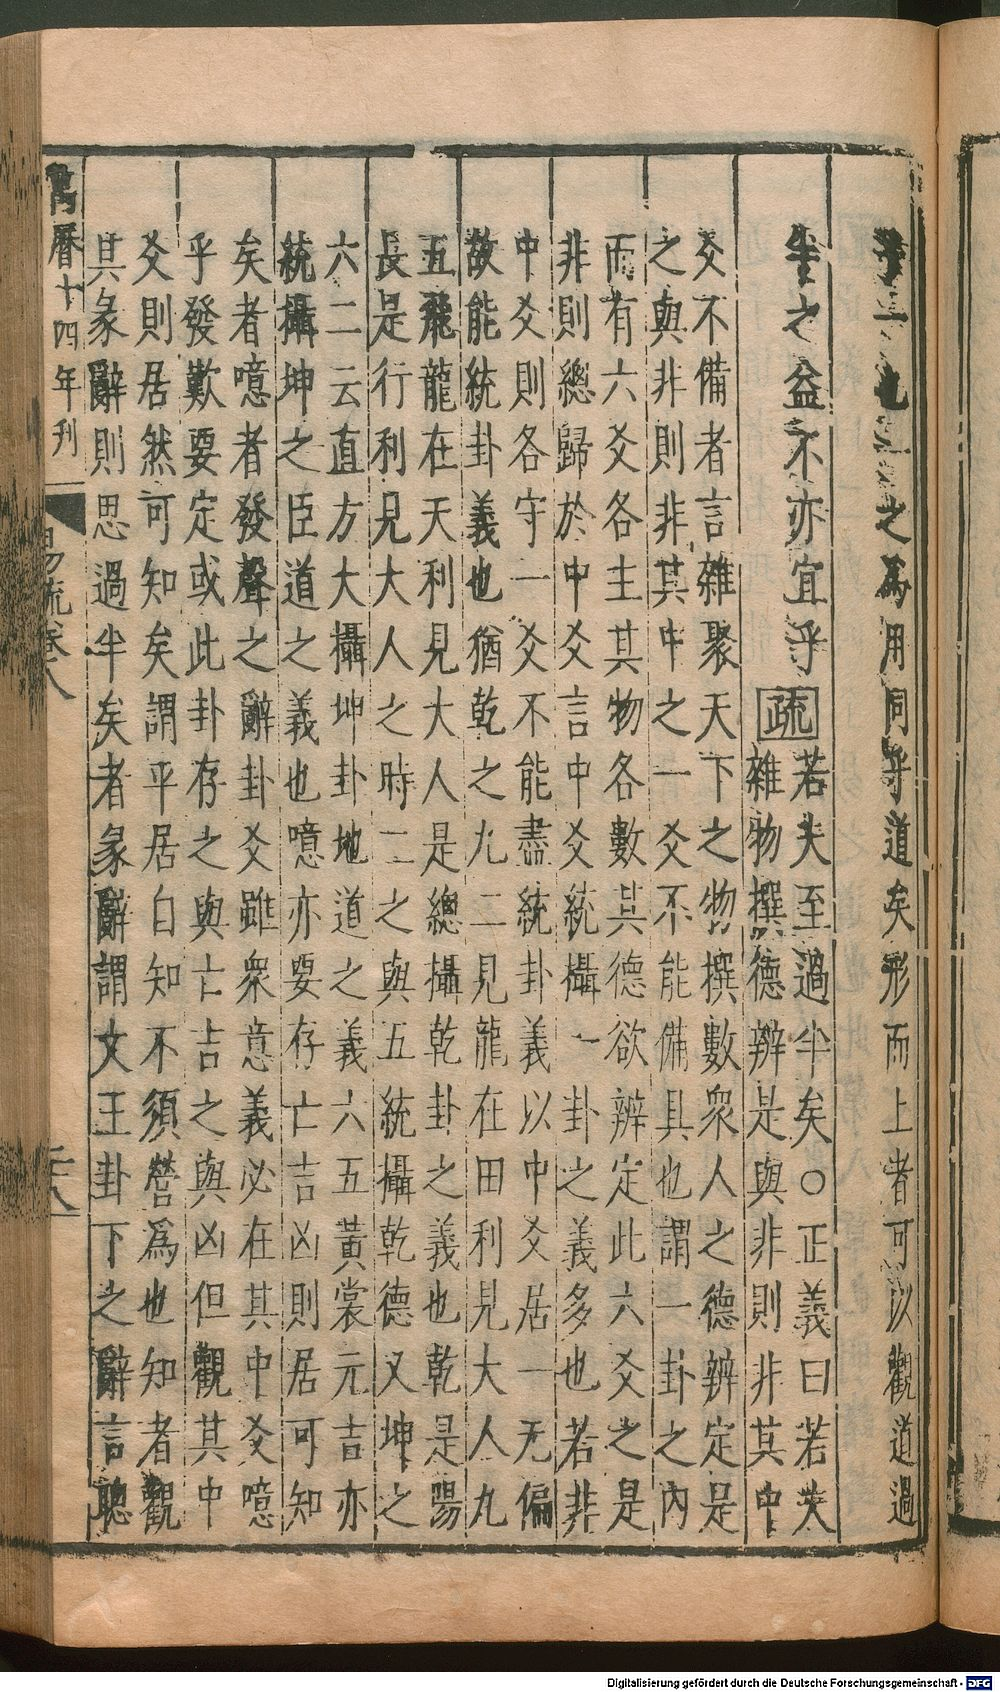 之爲用同乎道矣形而上者可以觀道過
半之益不亦宜乎疏若夫至過半矣○正義曰若夫
雜物撰德辨是與非則非其中
爻不備者言雜聚天下之物撰數衆人之德辨定是
之與非則非其中之一爻不能備具也謂一卦之內
而有六爻各主其物各數其德欲辨定此六爻之是
非則總歸於中爻言中爻統攝一卦之義多也若非
中爻則各守一爻不能盡統卦義以中爻居一无偏
故能統卦義也猶乾之九二見龍在田利見大人九
五飛龍在天利見大人是總攝乾卦之義也乾是陽
長是行利見大人之時二之與五統攝乾德又坤之
六二云直方大攝坤卦地道之義六五黃裳元吉亦
統攝坤之臣道之義也噫亦要存亡吉凶則居可知
矣者噫者發聲之辭卦爻雖衆意義必在其中爻噫
乎發歎要定或此卦存之與亡吉之與凶但觀其中
爻則居然可知矣謂平居自知不須營爲也知者觀
其彖辭則思過半矣者彖辭謂文王卦下之辭言聰
萬曆十四年刊
易疏卷八
Digitalisierung gefördert durch die Deutsche Forschungsgemeinschaft - DFG